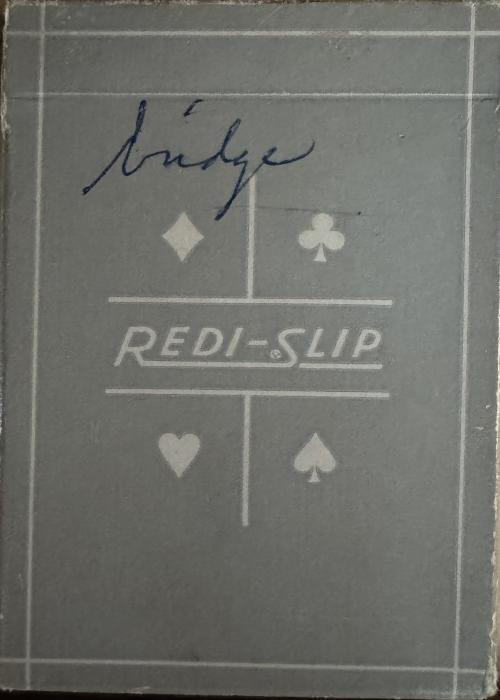 bridge
REDI-SLIP